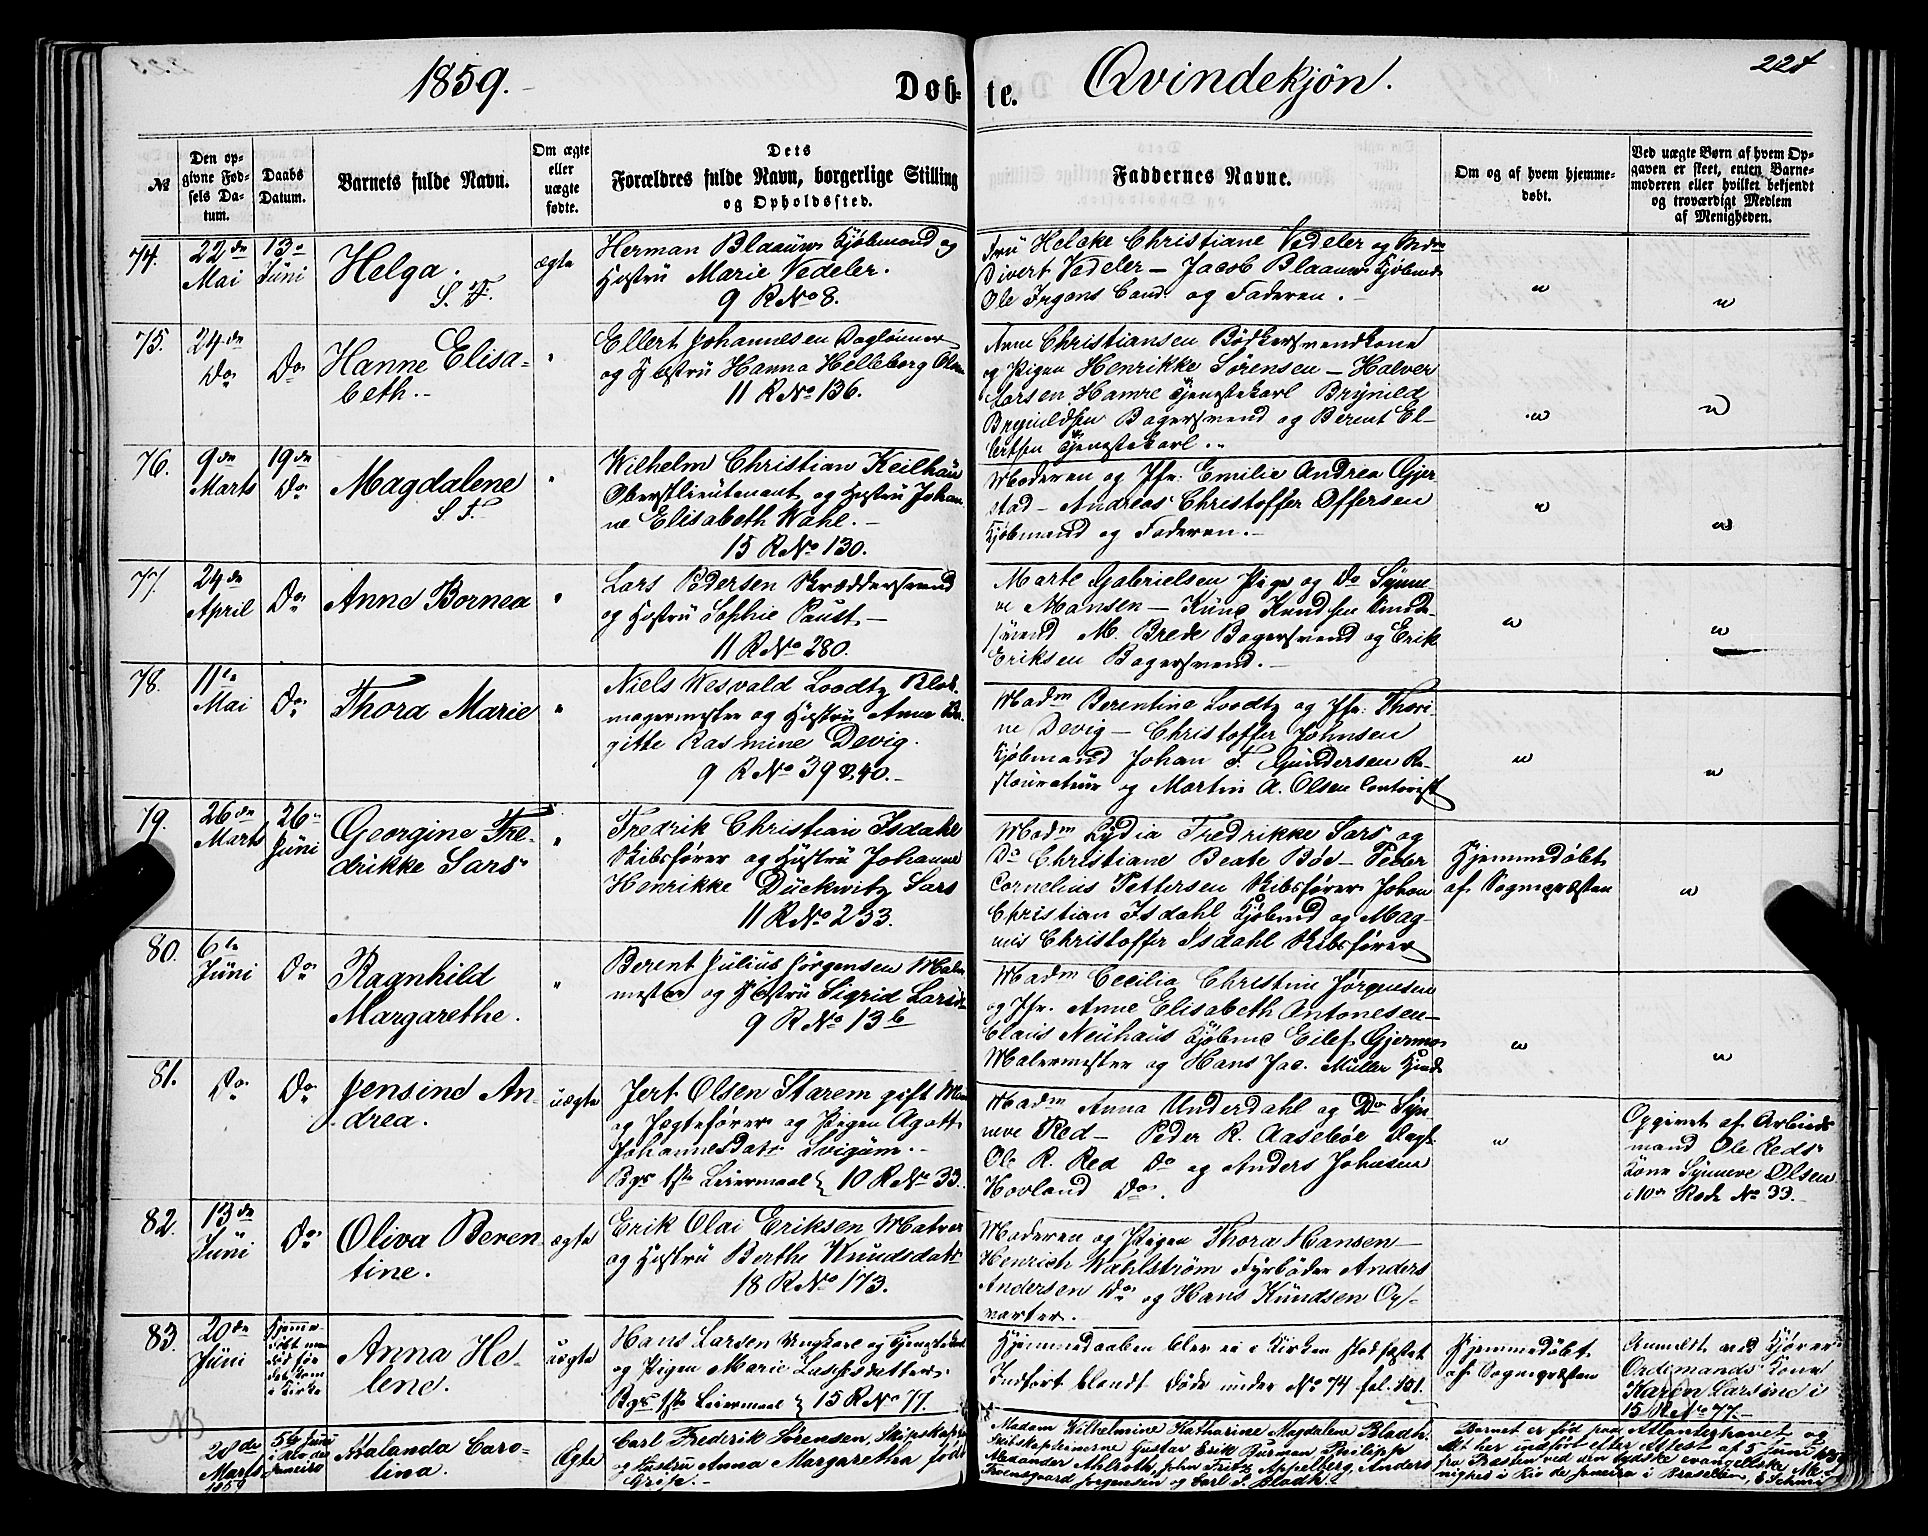 1859.
Døb-
te.
Qvindekjøn.
221
№
Den op-
givne Fød-
sels Da-
tum.
Daabs
Datum.
Barnets fulde Navn.
Om ægte
eller
uægte
fødte.
Dets
Forældres fulde Navn, borgerlige Stilling
og Opholdssted.
Faddernes Navne.
Om og af hvem hjemme-
døbt.
Ved uægte Børn af hvem Op-
gaven er skeet, enten Barne-
moderen eller hvilket bekjendt
og troværdigt Medlem
af Menigheden.
74.
22de
Mai
13.
Juni
Helga.
S. F.
ægte
Herman Blaauw Kjøbmand og
Hustru Marie Vedeler.
9 R No 8.
Fru Helcke Christiane Vedeler og
Divert Vedeler — Jacob Blaauw Kjøbmd
Ole Irgens Cand. og Faderen. —
75.
24de
Do
Do
Hanne Elisa-
beth.
Ellert Johannesen Daglønner
og Hustru Hanna Helleborg
11 R No 136.
Anne Christiansen Bødkersvendkone
og Pigen Henrikke Sørensen — Halver
Larsen Hamre Tjenestekarl Brynild
Brynildsen Bagersvend og Berent El-
lertsen Tjenestekarl.
76.
9de
Marts
19de
Do
Magdalene
S. F.
Wilhelm Christian Keilhau
Oberstlieutenant og Hustru Johan-
ne Elisabeth Wahl. —
15 R No 130.
Moderen og Jfr. Emilie Andrea Gjer-
stad — Andreas Christoffer Offersen
Kjøbmand og Faderen. —
77.
24de
April
Do
Anne Bornea
Lars Pedersen Skræddersvend
og Hustru Sophie Paust. —
11 R No 280.
Marte Gabrielsen Pige og Do Synne-
ve Monsen — Knud Knudsen
svend M. Brede Bagersvend og Erik
Eriksen Bagersvend. —
78.
11te
Mai
Do
Thora Marie
Niels Wesvald Loodtz Blok-
magermester og Hustru Anne Bir-
gitte Rasmine Devig.
9 R No 39 & 40. —
Madm Berentine Loodtz og Jfr. Thori-
ne Devig — Christoffer Johnsen
Kjøbmand Johan F. Gundersen Re-
staurateur og Martin A. Olsen Contorist
79.
26de
Marts
26
Juni
Georgine Fre-
drikke Sars
Fredrik Christian Isdahl
Skibsfører og Hustru Johanne
Henrikke Dückwitz Sars
11 R No 233.
Madm Lydia Fredrikke Sars og
Do Christiane Beate Bøe — Peder
Cornelius Pettersen Skibsfører Johan
Christian Isdahl Kjøbmd og Mag-
nus Christoffer Isdahl Skibsfører
Hjemmedøbt
af Sognepræsten
80.
6te
Juni
Do
Ragnhild
Margarethe.
Berent Julius Jørgensen Maler-
mester og Hustru Sigrid Larsdtr
9 R No 13b
Madm Cecilia Christine Jørgensen
og Jfr. Anne Elisabeth Antonesen —
Claus Neuhaus Kjøbmd Eilef Gjerme
Malermester og Hans Jac. Müller
81.
Do
Do
Jensine An-
drea.
uægte
Jert Olsen Starem gift Mand
og Jægtefører og Pigen Agatte
Johannesdatr Svigum. —
Bgs 1ste Leiermaal } 10 R No 33.
Madm Anna Underdahl og Do Syn-
neve Red — Peder R. Aasebøe
Ole R. Red Do og Anders Johnsen
Hovland Do.
Opgivet af Arbeids-
mand Ole Reds
Kone Synneve Olsen
i 10de Rode No 33. —
82.
13de
Juni
Do
Oliva Beren-
tine.
ægte
Erik Olai Eriksen Matros
og Hustru Berthe Knudsdatr
18 R No 173.
Moderen og Pigen Thora Hansen —
Henrich Wahlstrøm Fyrbøder Anders
Andersen Do og Hans Knudsen Op-
varter.
83.
20de
Juni
Hjemme-
døbt
Anna He-
lene.
uægte
Hans Larsen Ungkarl og Tjenestekarl
og Pigen Marie
Bgs 1ste Leiermaal } 15 R No 77.
Hjemmedaaben blev ei i Kirken stadfæstet
Indført blandt Døde under No 74 fol. 151.
Hjemmedøbt
af Sognepræsten
Anmeldt ved
Ordsmands Kone
Karen Larsine i
15 R No 77. —
NB
28de
Marts
1859
5te Juni
i Rio de
Janeiro
Atalanda Caro-
lina.
Ægte
Carl Frederik Sørensen, Skipskaptein
og Hustru Anna Margaretha født
Grip. —
Madam Wilhelmine Katharine Magdalene Bladh.
Skibskapteinerne Gustav Erik Burman, Philippe
Alexander Ahlroth, John Fritz Appelberg, Anders
Svensgaard Jørgensen og Carl S. Bladh. —
Barnet er fød paa Atlanterhavet og
det her indført efter Attest af 5 Juni 1859
fra Præsten ved den tydske evangeliske Me-
nighed i Rio de Janeiro i Brasilien,